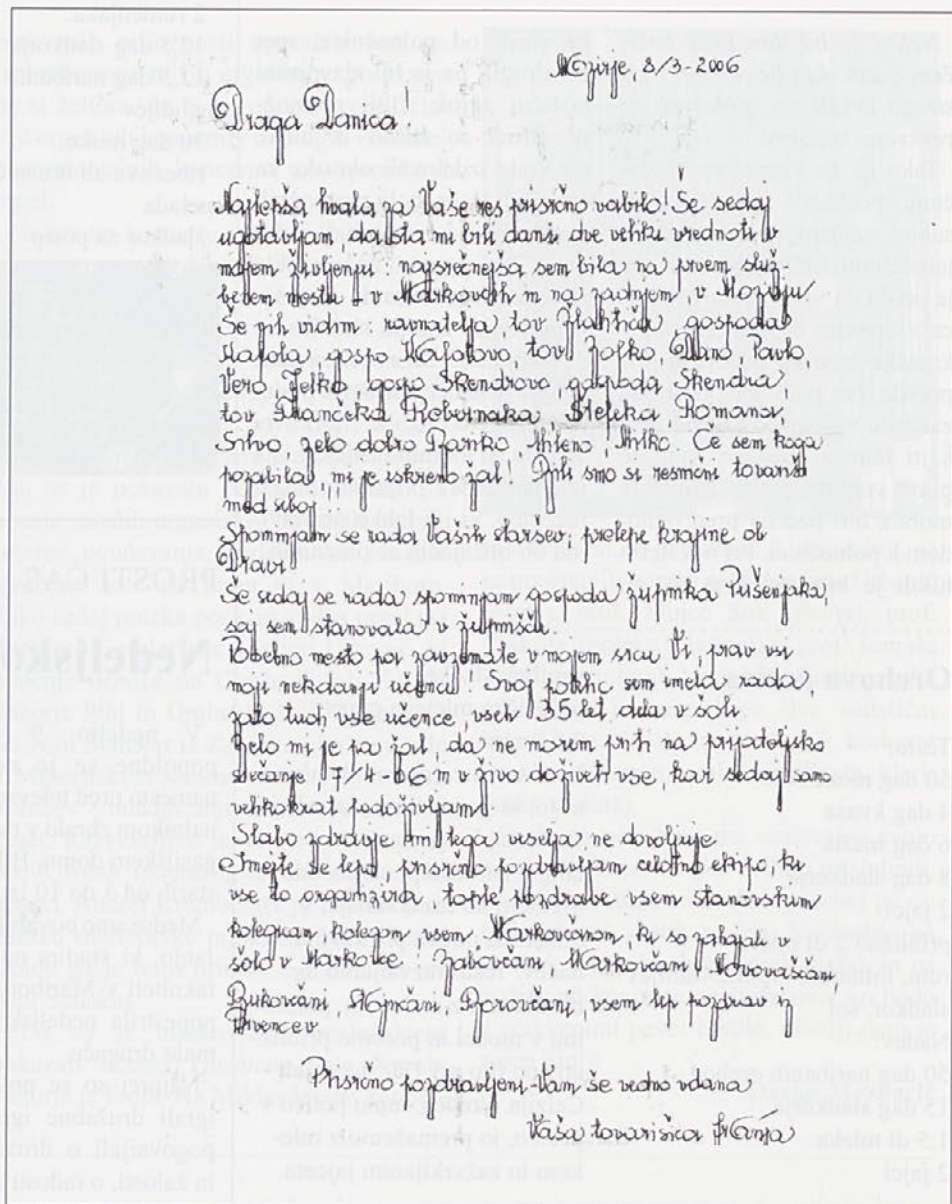 Mozirje, 8/3-2006
Draga Danica!
Najlepša hvala za Vaše res prisrčno vabilo! Še sedaj
ugotavljam, da sta mi bili dani dve veliki vrednoti v
mojem življenju: najsrečnejša sem bila na prvem služ-
benem mestu - v Markovcih in na zadnjem, v Mozirju.
Še jih vidim: ravnatelja, tov. gospoda
gospo tov. Zofko, Pavlo,
Vero, Jelko, gospo Škendrovo, gospoda Škendra
tov. Frančeka Robernaka, Bieleka Romana,
Silvo, zelo dobro Pariko, Mileno, Milko. Če sem koga
pozabila, mi je iskreno žal! Bili smo si resnični tovariši
med seboj!
Spominjam se rada Vaših staršev, prelepe krajine ob
Dravi.
Še sedaj se rada spominjam gospoda župnika Pušenjaka,
saj sem stanovala v župnišču.
Posebno mesto pa zavzemate v mojem srcu, Vi, prav vsi
moji nekdanji učenci! Svoj poklic sem imela rada,
zato tudi vse učence, vseh 35 let dela v šoli.
Zelo mi je pa žal, da ne morem priti na prijateljsko
srečanje 7/4-06 in v živo doživeti vse, kar sedaj samo
velikokrat podoživljam.
Slabo zdravje mi tega veselja ne dovoljuje.
Imejte se lepo, prisrčno pozdravljam celotno ekipo, ki
vse to organizira, tople pozdrave vsem stanovskim
kolegicam, kolegom, vsem Markovčanom, ki so zahajali v
šolo v Markovce: Zabovčani, Markovčani, Novovaščani,
Bukovčani, Stojnčani, Borovčani, vsem lep pozdrav iz
Prvencev.
Prisrčno pozdravljeni - Vam še vedno vdana
Vaša tovarišica